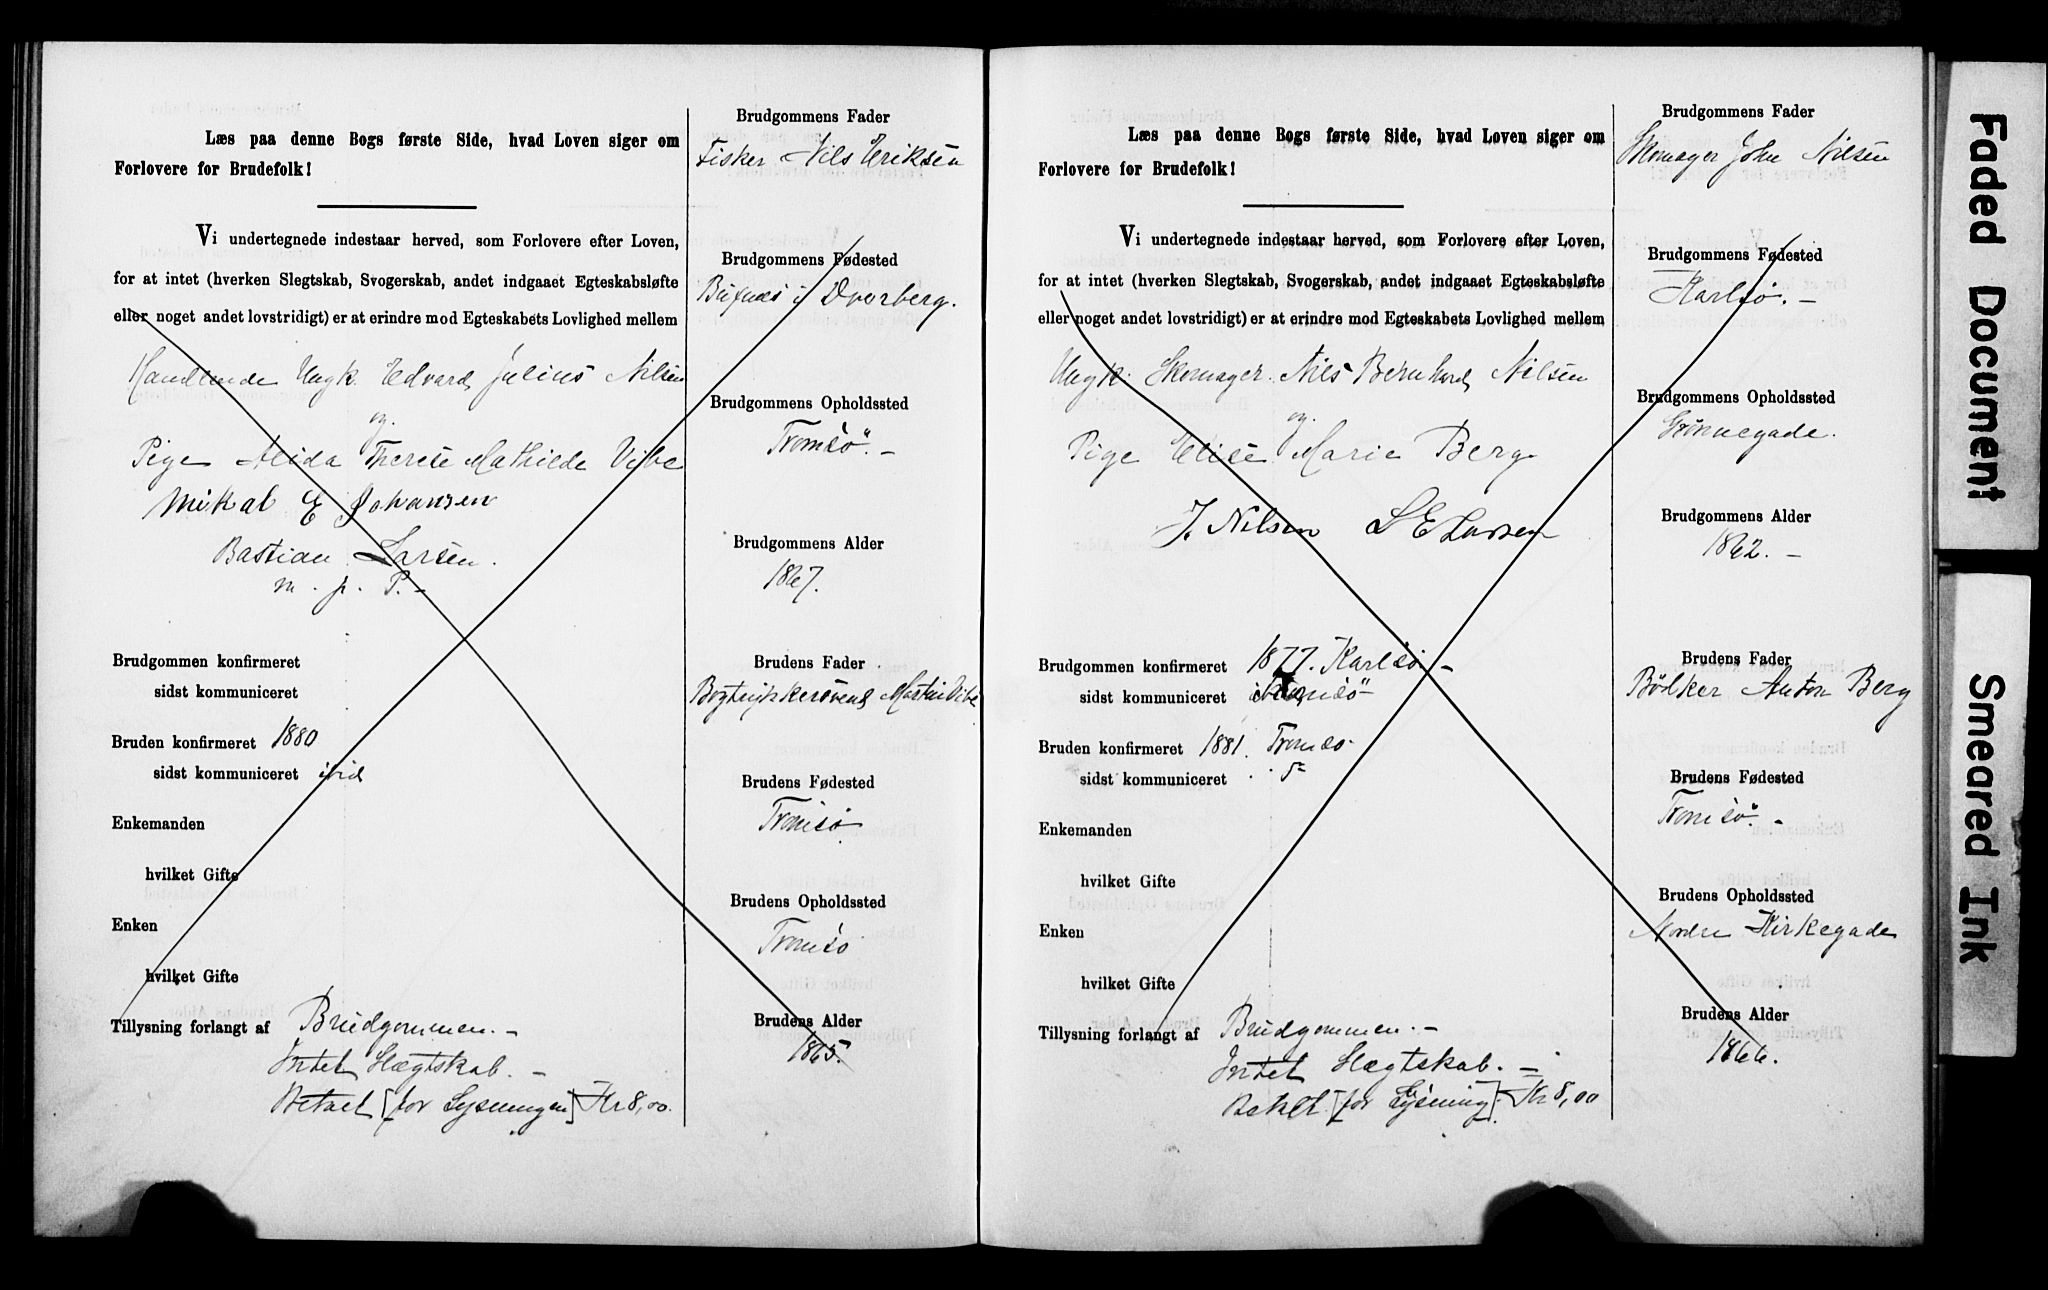 Læs paa denne Bogs første Side, hvad Loven siger om
Forlovere for Brudefolk!
Vi undertegnede indestaar herved, som Forlovere efter Loven,
for at intet (hverken Slegtskab, Svogerskab, andet indgaaet Egteskabsløfte
eller noget andet lovstridigt) er at erindre mod Egteskabets Lovlighed mellem
Handlende Ungk. Edvard Julius Nilsen
og
Pige Alida Therese Mathilde Vibe
Mikal E Johansen
Bastian Larsen.
m. p. P. -
Brudgommen konfirmeret
sidst kommuniceret
Bruden konfirmeret 1880
sidst kommuniceret ibid
Enkemanden
hvilket Gifte
Enken
hvilket Gifte
Tillysning forlangt af Brudgommen. -
Intet Slægtskab. -
Betalt [for Lysningen] Kr 8,00.
Brudgommens Fader
Fisker Nils Eriksen
Brudgommens Fødested
Buxnes i Dverberg.
Brudgommens Opholdssted
Tromsö. -
Brudgommens Alder
1867.
Brudens Fader
Bogtrykkersvend Martin Vibe
Brudens Fødested
Tromsø
Brudens Opholdssted
Tromsø
Brudens Alder
1865.
Læs paa denne Bogs første Side, hvad Loven siger om
Forlovere for Brudefolk!
Vi undertegnede indestaar herved, som Forlovere efter Loven,
for at intet (hverken Slegtskab, Svogerskab, andet indgaaet Egteskabsløfte
eller noget andet lovstridigt) er at erindre mod Egteskabets Lovlighed mellem
Ungk. Skomager Nils Bernhard Nilsen
og
Pige Elise Marie Berg
J. Nilsen L E Larsen
Brudgommen konfirmeret 1877. Karlsö -
sidst kommuniceret Tromsö
Bruden konfirmeret 1881. Tromsø
sidst kommuniceret
Enkemanden
hvilket Gifte
Enken
hvilket Gifte
Tillysning forlangt af Brudgommen. -
Intet Slægtskab. -
Betalt [for Lysning]. Kr 8,00
Brudgommens Fader
Skomager John Nilsen
Brudgommens Fødested
Karlsø. -
Brudgommens Opholdssted
Grönnegade.
Brudgommens Alder
1862. -
Brudens Fader
Bödker Anton Berg
Brudens Fødested
Tromsö. -
Brudens Opholdssted
Nordre Kirkegade
Brudens Alder
1866.
Faded Document
Smeared Ink